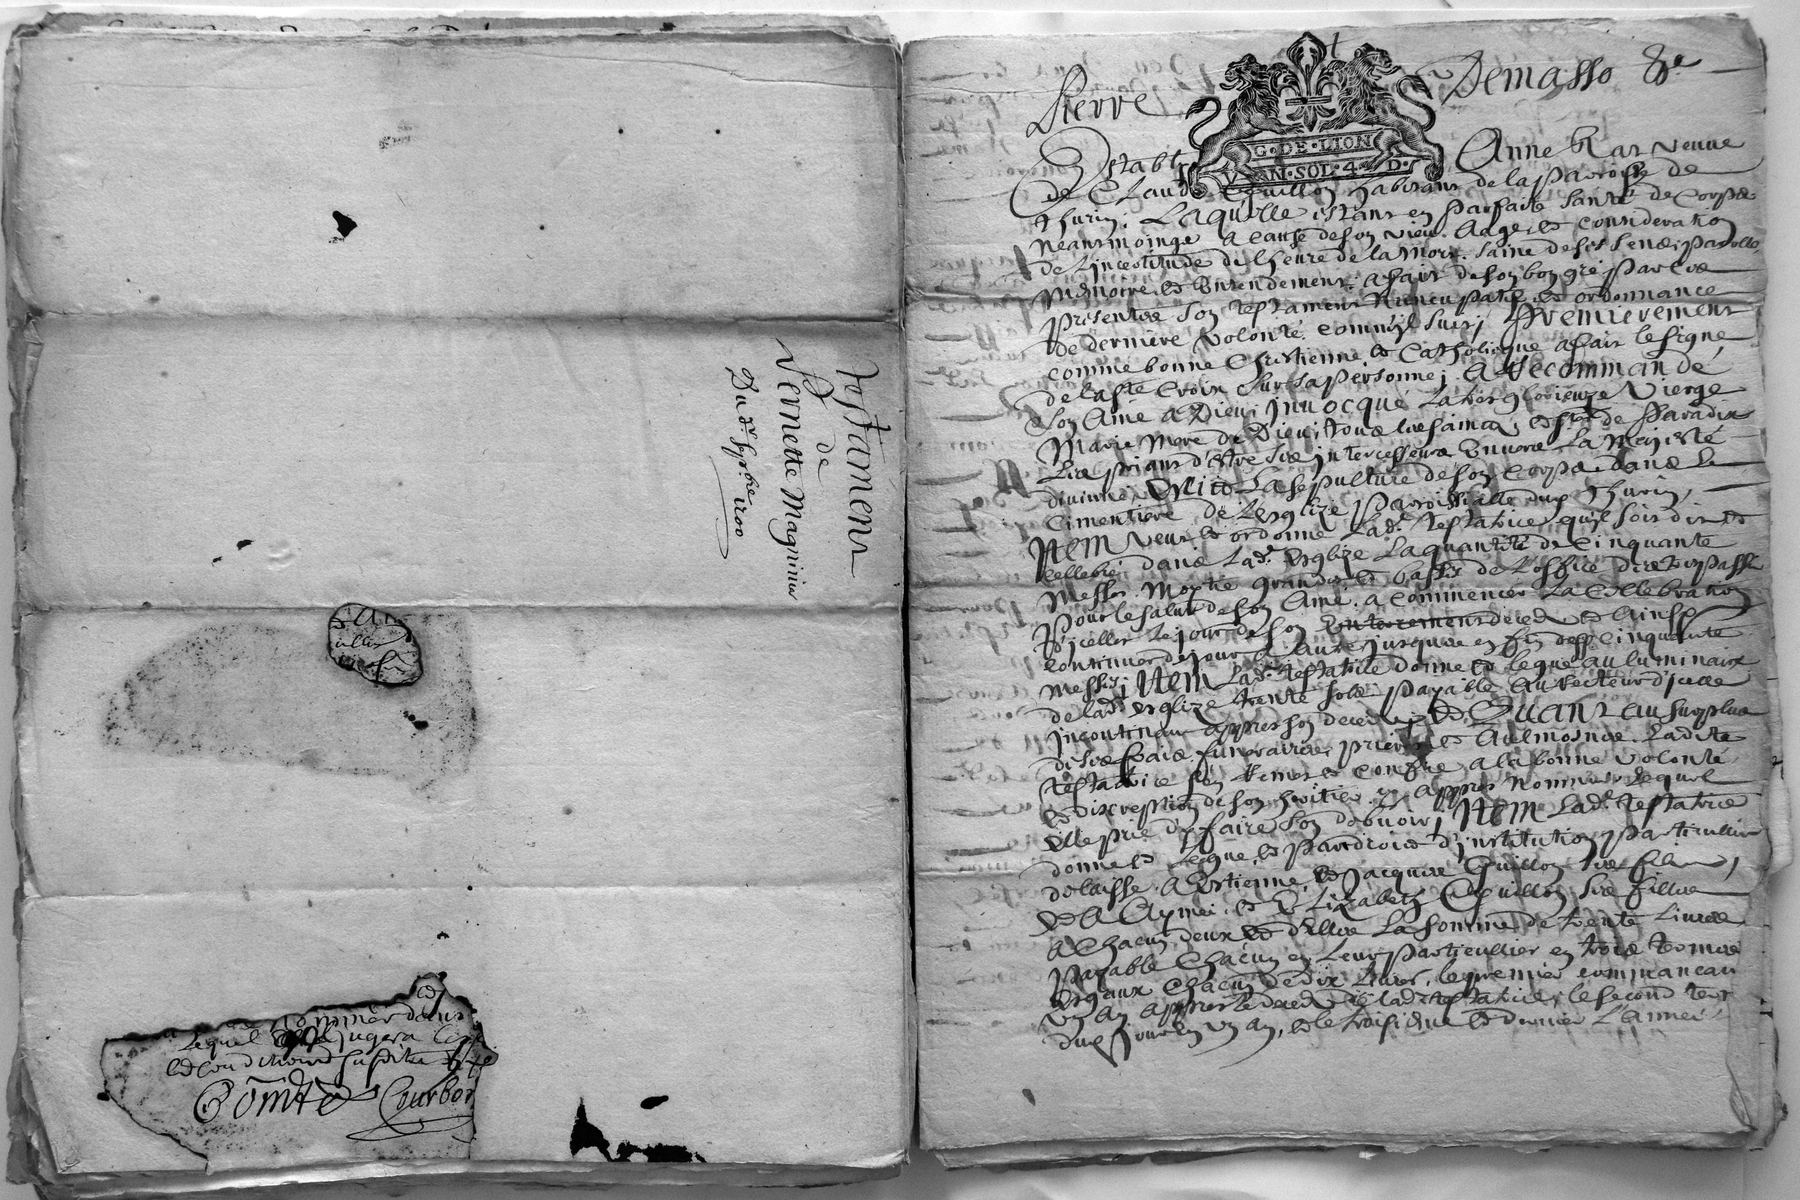 Testament
de
Pernette Magninin
illis
nommer dans
Lequel
et conditions susdites
Comte Courbon
Pierre Demasso &c
G·DE·LION
VN·SOL·4·D·
Establie Anne Kar veuve
de Claude Eguillon habitant de la parroisse de
Thurin, Laquelle estant en parfaite santé de corps
neantmoings a cause de son vieu aage et consideration
de l'incertitude de l'heure de la mort, saine de ses sens, parolle
memoire et entendement, a fait de son bon gré par ces
presentes son testament nuncupatif et ordonnance
de derniere volonté comm'il suit, Premierement
comme bonne Chrestienne et Catholicque a fait le signe
de la ste Croix sur sa personne, a recommandé
son Ame a Dieu, invocqué la tres glorieuze Vierge
Marie Mere de Dieu, tous les saincts et stes de Paradis
les priant d'estre ses intercesseurs envers La Majesté
divinne, Eslit La sepulture de son corps dans le
cimentiere de L'esglize parroissialle dud Thurin,
Item veut et ordonne lad. testatrice qu'il soit dit et
cellebré dans lad. esglize la quantité de cinquante
Messes, moytié grandes et basses de L'office des trespassés
pour le salut de son Ame, a commencer la cellebration
d'icelles le jour de son enterrement deced et ainsy
continuer de jour a autre jusques en fin desd cinquante
messes, Item lad. testatrice donne et legue au luminaire
de lad. esglize trente sols payable au recteur d'icelle
incontinant appres son deces, et Quant au surplus
de ses frais funeraires, prieres et aulmosnes Ladite
testatrice s'en remet et confie a la bonne volonté
et discreption de son heritier cy appres nommé lequel
elle prie d'en faire son debvoir, Item lad. testatrice
donne et legue, et par droict d'institution particulliere
delaisse a Estienne, et Jacques Eguillon ses fils,
et a Aymée et Elizabeth Eguillon ses filles
a chacun d'eux et d'elles la somme de trente livres
payable chacun en leur particullier en trois termes
esgaux chacun de dix livres, le premier commancant
un an appres le deced de lad. testatrice, le second tel
dud jour en un an, et le troisieme et dernier l'année